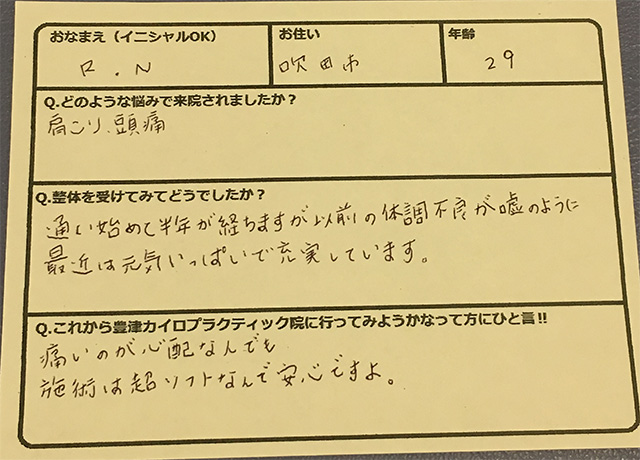 おなまえ（イニシャルOK）
R.N
お住い
吹田市
年齢
29
Q.どのような悩みで来院されましたか？
肩こり、頭痛
Q.整体を受けてみてどうでしたか？
通い始めて半年が経ちますが以前の体調不良が嘘のように
最近は元気いっぱいで充実しています。
Q.これから豊津カイロプラクティック院に行ってみようかなって方にひと言!!
痛いのが心配なんでも
施術は超ソフトなんで安心ですよ。